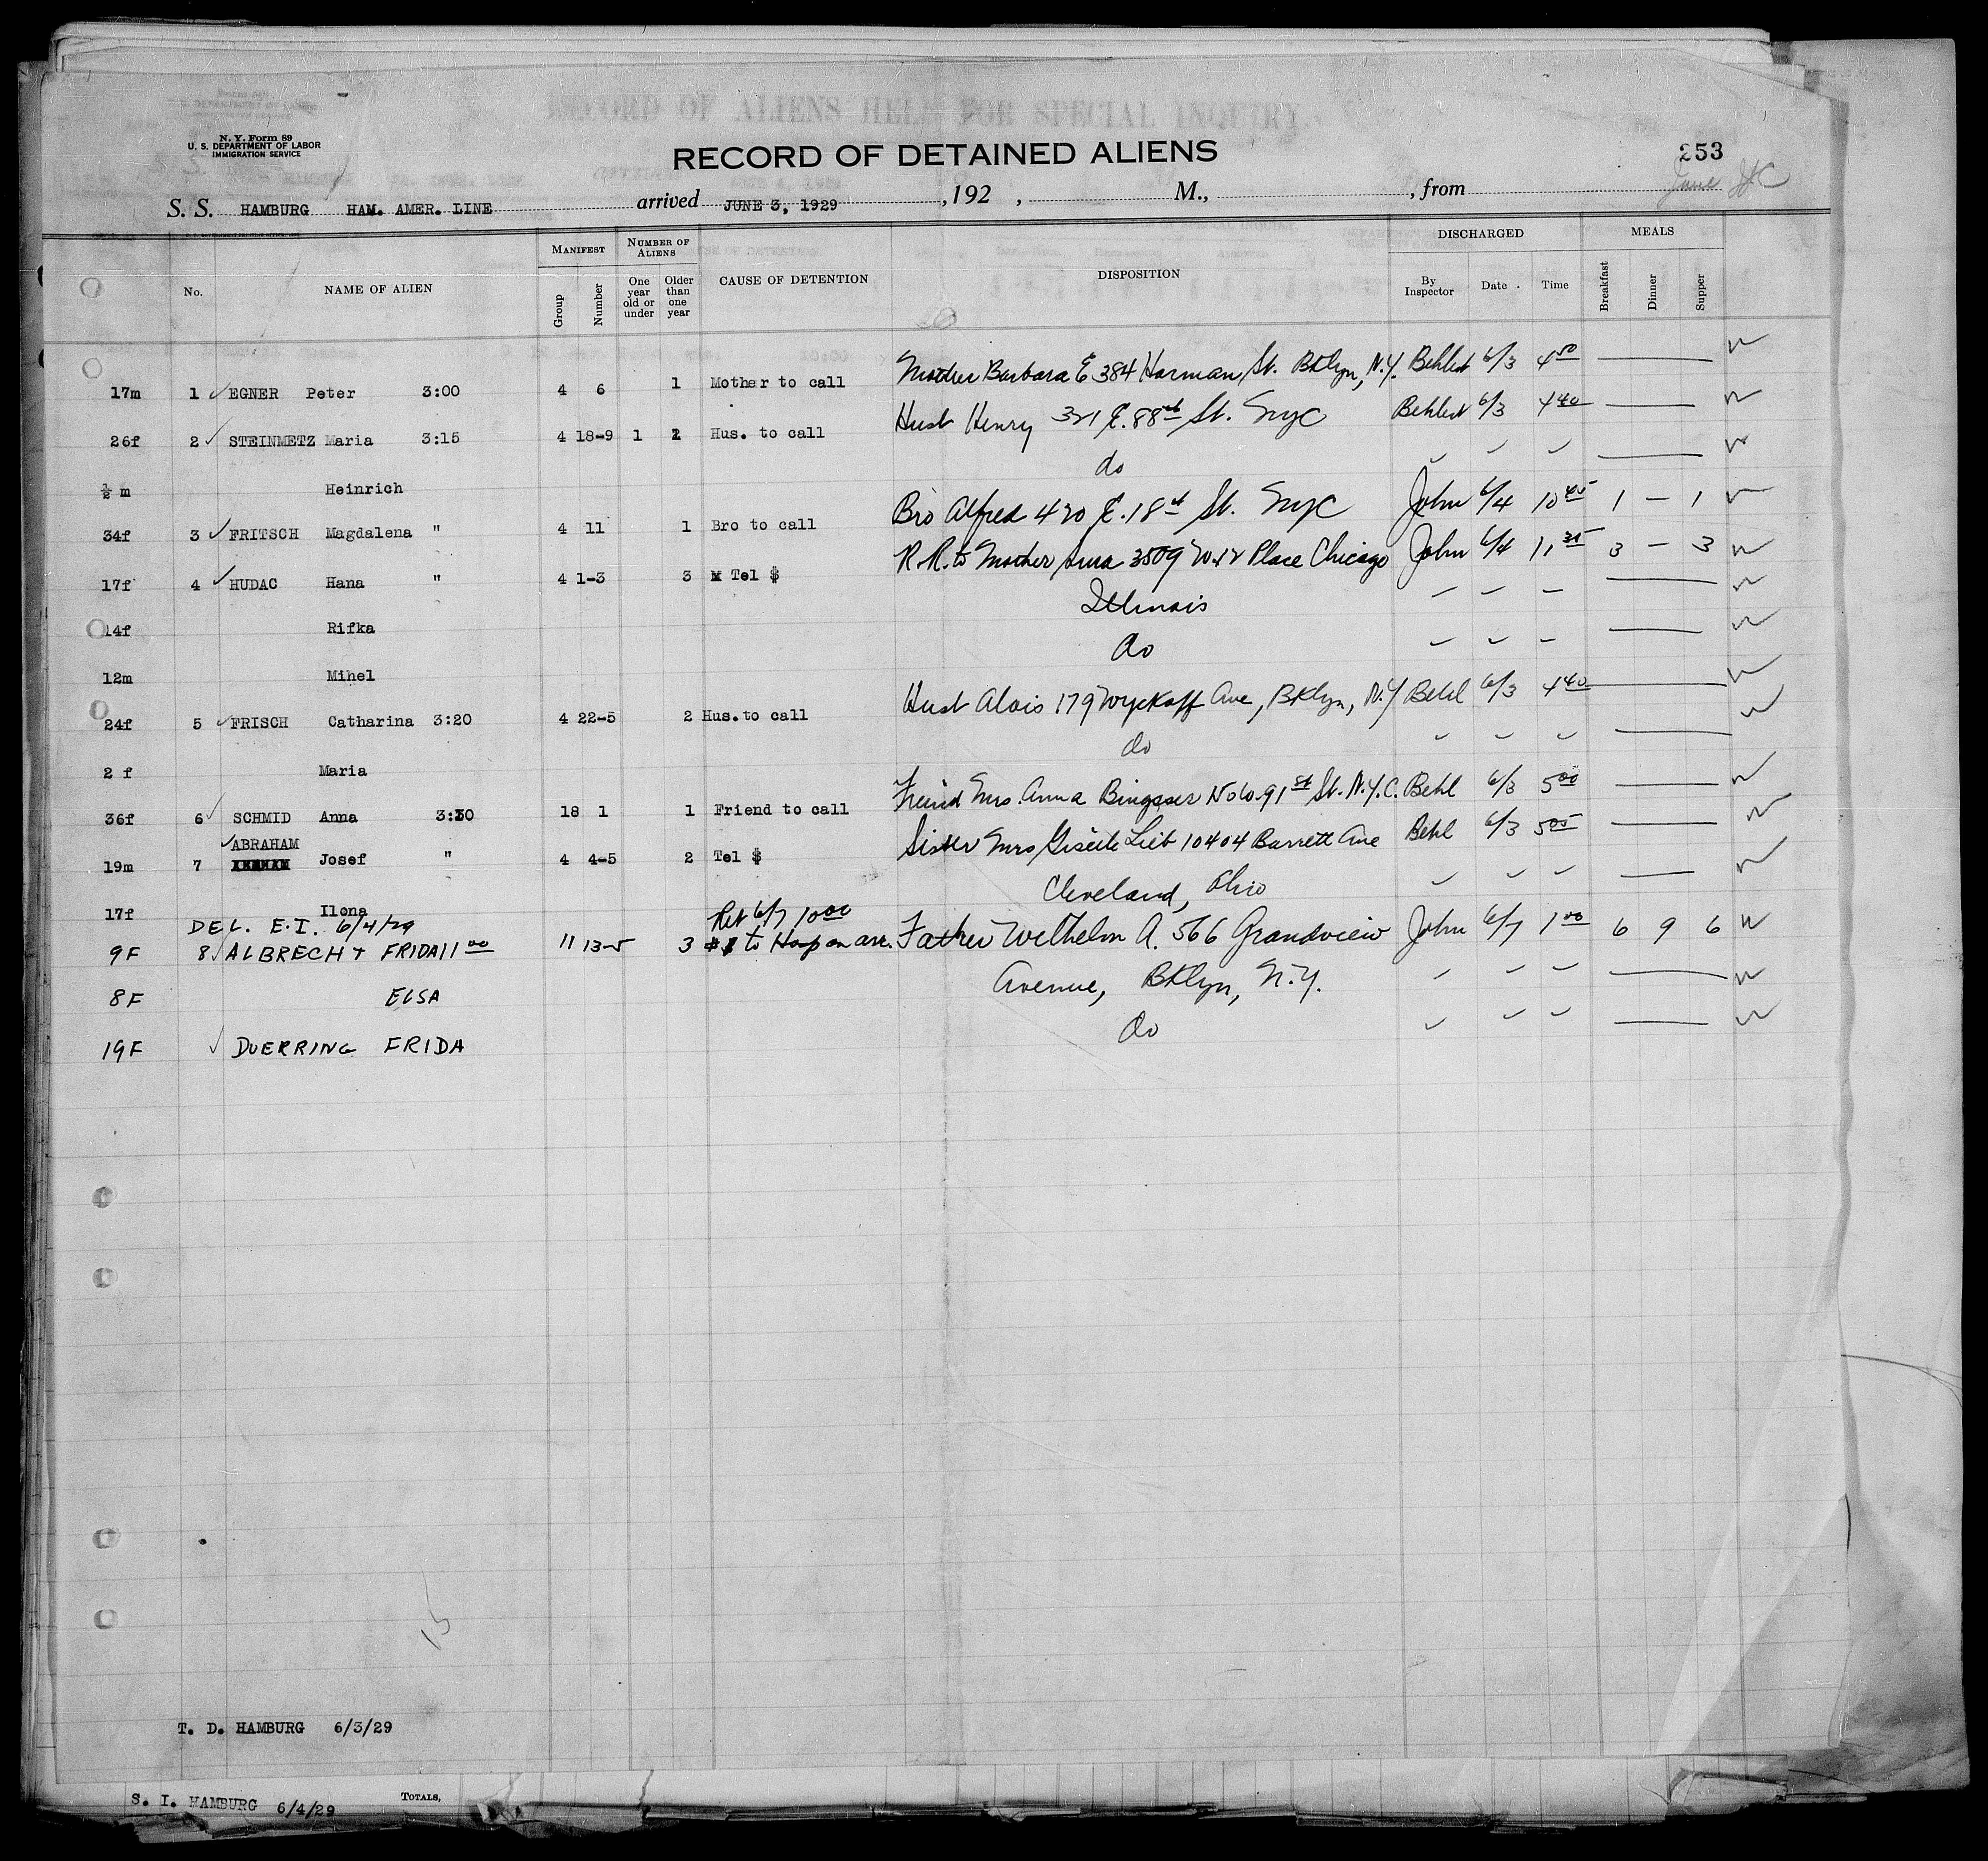 N. Y. Form 89
U. S. DEPARTMENT OF LABOR
IMMIGRATION SERVICE
RECORD OF ALIENS HELD FOR SPECIAL INQUIRY
RECORD OF DETAINED ALIENS
253
S. S. HAMBURG HAM. AMER. LINE arrived JUNE 3, 1929 , 192 , M., , from
No. NAME OF ALIEN MANIFEST NUMBER OF ALIENS CAUSE OF DETENTION DISPOSITION DISCHARGED MEALS
Group Number One year old or under Older than one year By Inspector Date Time Breakfast Dinner Supper
17m 1 ✓ EGNER Peter 3:00 4 6 1 Mother to call Mother Barbara E 384 Harman St. Bklyn, N.Y. Behlert 6/3 4 50
26f 2 ✓ STEINMETZ Maria 3:15 4 18-9 1 1 Hus. to call Husb Henry 321 E. 88th St. NYC Behlert 6/3 4 40
½ m Heinrich do
34f 3 ✓ FRITSCH Magdalena " 4 11 1 Bro to call Bro Alfred 420 E. 18th St. NYC John 6/4 10 45 1 — 1
17f 4 ✓ HUDAC Hana " 4 1-3 3 Tel $ R.R. to Mother 3509 W. 12 Place Chicago John 6/4 11 35 3 — 3
14f Rifka Illinois
12m Mihel do
24f 5 ✓ FRISCH Catharina 3:20 4 22-5 2 Hus. to call Husb Alois 179 Wyckoff Ave, Bklyn, N.Y Behl 6/3 4 40
2 f Maria do
36f 6 ✓ SCHMID Anna 3:30 18 1 1 Friend to call Friend Mrs. Anna W. 91st St. N.Y.C. Behl 6/3 5 00
✓ ABRAHAM
19m 7 Josef " 4 4-5 2 Tel $ Sister Mrs Lieb 10404 Barrett Ave Behl 6/3 5 05
17f Ilona Cleveland, Ohio
DEL. E.I. 6/4/29 Ret 6/7 10 00
9F 8 ✓ ALBRECHT FRIDA 11 00 11 13-5 3 to Hosp on arr. Father Wilhelm A. 566 Grandview John 6/7 1 00 6 9 6
8F ELSA Avenue, Bklyn, N.Y.
19F ✓ DUERRING FRIDA do
15
T. D. HAMBURG 6/3/29
S. I. HAMBURG 6/4/29 TOTALS,